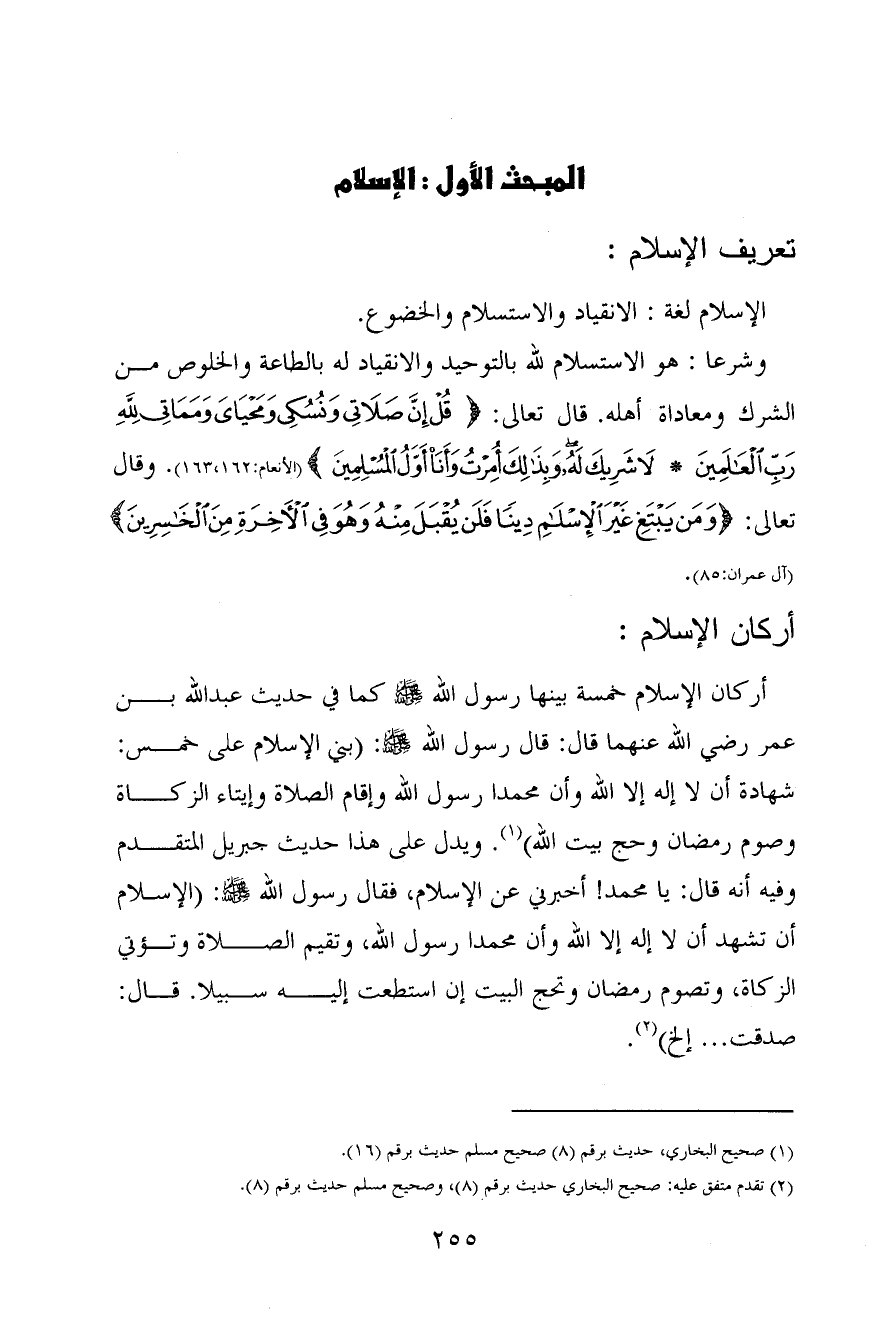 المبحث الأول : الإسلام
تعريف الإسلام :
الإسلام لغة : الانقياد والاستسلام والخضوع.
وشرعا : هو الاستسلام لله بالتوحيد والانقياد له بالطاعة والخلوص مـــن
الشرك ومعاداة أهله. قال تعالى: ﴿ قُلْ إِنَّ صَلَاتِى وَنُسُكِى وَمَحْيَاىَ وَمَمَاتِى لِلَّهِ
رَبِّ ٱلْعَـٰلَمِينَ * لَا شَرِيكَ لَهُۥ وَبِذَٰلِكَ أُمِرْتُ وَأَنَا۠ أَوَّلُ ٱلْمُسْلِمِينَ ﴾ (الأنعام:١٦٣،١٦٢). وقال
تعالى: ﴿وَمَن يَبْتَغِ غَيْرَ ٱلْإِسْلَـٰمِ دِينًا فَلَن يُقْبَلَ مِنْهُ وَهُوَ فِى ٱلْآخِرَةِ مِنَ ٱلْخَـٰسِرِينَ﴾
(آل عمران:٨٥).
أركان الإسلام :
أركان الإسلام خمسة بينها رسول الله ﷺ كما في حديث عبدالله بـــــن
عمر رضي الله عنهما قال: قال رسول الله ﷺ: (بني الإسلام على خمـــس:
شهادة أن لا إله إلا الله وأن محمدا رسول الله وإقام الصلاة وإيتاء الزكـــــاة
وصوم رمضان وحج بيت الله)(١). ويدل على هذا حديث جبريل المتقـــدم
وفيه أنه قال: يا محمد! أخبرني عن الإسلام، فقال رسول الله ﷺ: (الإســلام
أن تشهد أن لا إله إلا الله وأن محمدا رسول الله، وتقيم الصـــــلاة وتــؤتي
الزكاة، وتصوم رمضان وتحج البيت إن استطعت إليـــــه ســـبيلا. قــال:
صدقت... إلخ)(٢).
(١) صحيح البخاري، حديث برقم (٨) صحيح مسلم حديث برقم (١٦).
(٢) تقدم متفق عليه: صحيح البخاري حديث برقم (٨)، وصحيح مسلم حديث برقم (٨).
٢٥٥